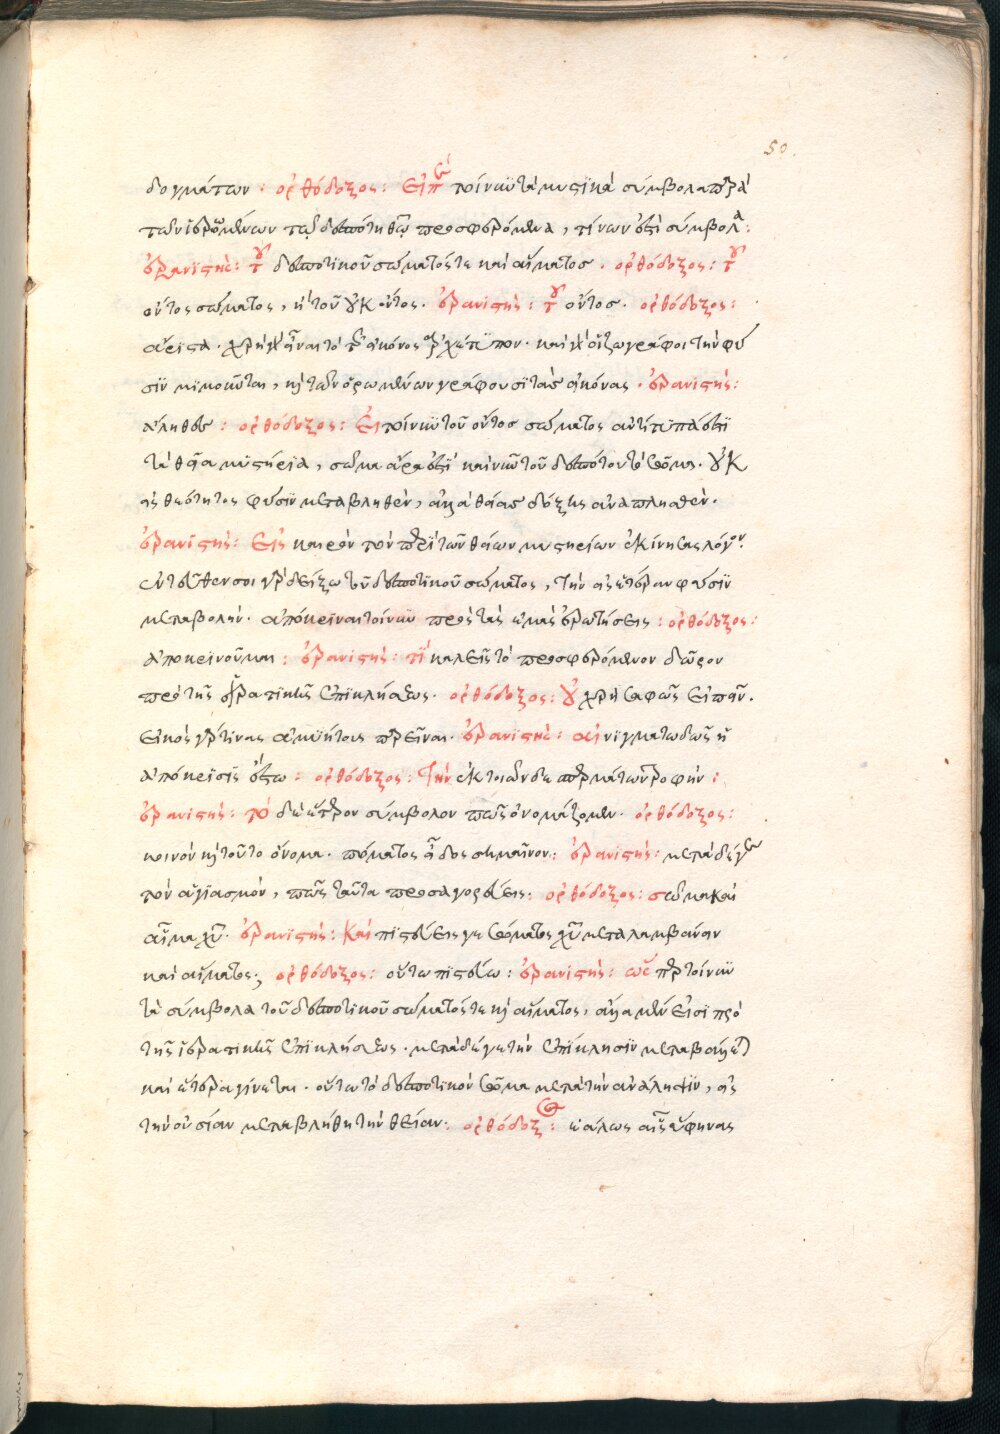 50.
δογμάτων : ὀρθόδοξος : Εἰπὲ τοίνυν τὰ μυστικὰ σύμβολα παρὰ
τῶν ἱερωμένων τῷ δεσπότῃ θεῷ προσφερόμενα, τίνων ἐστὶ σύμβολα :
ἐρανιστής : τοῦ δεσποτικοῦ σώματός τε καὶ αἵματος . ὀρθόδοξος : τοῦ
ὄντος σώματος, ἢ τοῦ οὐκ ὄντος . ἐρανιστής : τοῦ ὄντος . ὀρθόδοξος :
ἄριστα . χρὴ γὰρ εἶναι τὸ τῆς εἰκόνος ἀρχέτυπον . καὶ γὰρ οἱ ζωγράφοι τὴν φύ
σιν μιμοῦνται, καὶ τῶν ὁρωμένων γράφουσι τὰς εἰκόνας . ἐρανιστής :
ἀληθές : ὀρθόδοξος : Εἰ τοίνυν τοῦ ὄντος σώματος ἀντίτυπά ἐστι
τὰ θεῖα μυστήρια, σῶμα ἄρα ἐστὶ καὶ νῦν τοῦ δεσπότου τὸ σῶμα . οὐκ
εἰς θεότητος φύσιν μεταβληθὲν, ἀλλὰ θείας δόξης ἀναπλησθέν .
ἐρανιστής : Εἰς καιρὸν τὸν περὶ τῶν θείων μυστηρίων ἐκίνησας λόγον .
ἐντεῦθεν σοι γὰρ δείξω τοῦ δεσποτικοῦ σώματος, τὴν εἰς ἑτέραν φύσιν
μεταβολήν . ἀπόκριναι τοίνυν πρὸς τὰς ἐμὰς ἐρωτήσεις : ὀρθόδοξος :
ἀποκρινοῦμαι : ἐρανιστής : τί καλεῖς τὸ προσφερόμενον δῶρον
πρὸ τῆς ἱερατικῆς ἐπικλήσεως . ὀρθόδοξος : οὐ χρὴ σαφῶς εἰπεῖν .
εἰκὸς γάρ τινας ἀμυήτους παρεῖναι . ἐρανιστής : αἰνιγματωδῶς ἡ
ἀπόκρισις ἔστω : ὀρθόδοξος : Τὴν ἐκ τοιῶνδε σπερμάτων τροφήν :
ἐρανιστής : τὸ δὲ ἕτερον σύμβολον πῶς ὀνομάζομεν . ὀρθόδοξος :
κοινὸν καὶ τοῦτο ὄνομα . πόματος εἶδος σημαῖνον : ἐρανιστής : μετὰ δέ γε
τὸν ἁγιασμὸν, πῶς ταῦτα προσαγορεύεις . ὀρθόδοξος : σῶμα καὶ
αἷμα χυ . ἐρανιστής : Καὶ πιστεύεις γε σώματος χυ μεταλαμβάνειν
καὶ αἵματος ; ὀρθόδοξος : οὕτω πιστεύω : ἐρανιστής : ὥσπερ τοίνυν
τὰ σύμβολα τοῦ δεσποτικοῦ σώματός τε καὶ αἵματος, ἄλλα μέν εἰσι πρὸ
τῆς ἱερατικῆς ἐπικλήσεως . μετὰ δέ γε τὴν ἐπίκλησιν μεταβάλλεται
καὶ ἕτερα γίνεται . οὕτω τὸ δεσποτικὸν σῶμα μετὰ τὴν ἀνάληψιν, εἰς
τὴν οὐσίαν μετεβλήθη τὴν θείαν : ὀρθόδοξος : ἑάλως αἷς ὕφηνας